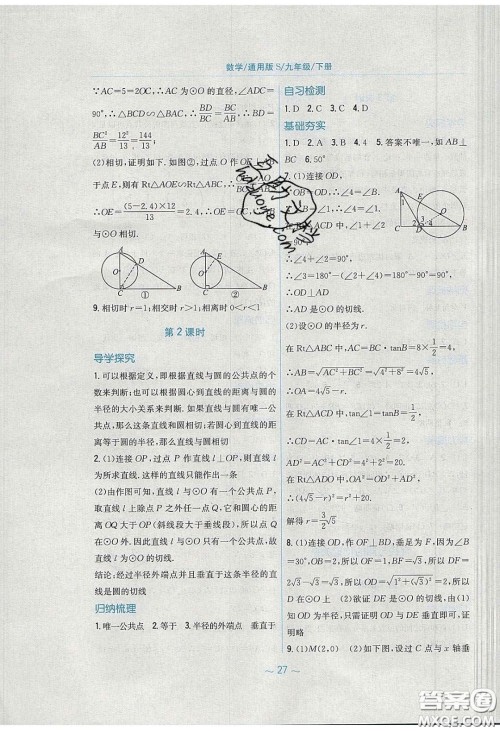 数学/通用版 S/九年级/下册
∵AC=5=2OC,∴AC 为⊙O 的直径,∠ADC=
90°,∴△BDC∽△BAC,∴BD/BC=BC/BA,∴BD=
BC²/AB=12²/13=144/13;
(2)相切,证明如下.如图②,过点 O 作 OE
于点 E,则有 Rt△AOE∽Rt△ABC,
∴OE=(5-2.4)×12/13=2.4,
与⊙O 相切.
A
O
D
C
①
B
A
O
E
D
C
②
B
9. 相切时 r=1;相交时 r>1;相离时 0<r<1
第 2 课时
导学探究
1. 可以根据定义,即根据直线与圆的公共点的个
数来判断;也可以根据圆心到直线的距离与圆的
半径的大小关系来判断.如果直线与圆有唯一公
共点,那么直线与圆相切;如果圆心到直线的距
离等于圆的半径,那么直线与圆相切
2. (1)连接 OP,过点 P 作直线 l⊥OP,则直线 l
为所求直线.这样的直线只能作出一条
(2)由作图可知,直线 l 与⊙O 有一个公共点 P,
取直线 l 上除点 P 之外任一点 Q,它和圆心的距
离 OQ 大于 OP(斜线段大于垂线段),所以点 Q 在
⊙O 外.因此直线 l 与⊙O 有唯一公共点,故直
线 l 为⊙O 的切线.
结论:经过半径外端点并且垂直于这条半径的直
线是圆的切线
归纳梳理
1. 唯一公共点 2. 等于 3. 半径的外端点 垂直于
自习检测
1. D 2. C 3. C 4. D
基础夯实
1. D 2. A 3. B 4. 4 5. 答案不唯一,如 AB⊥
BC 6. 50°
7. (1)连接 OD,
∵OB=OD,∴∠3=∠B.
∵∠B=∠1,∴∠1=∠3.
在 Rt△ACD 中,∠1+∠2
=90°,
∴∠4=180°-(∠2+∠3)=180°-90°=90°,
∴OD⊥AD
∴AD 是⊙O 的切线.
(2)设⊙O 的半径为 r.
在 Rt△ABC 中,AC=BC·tanB=8×1/2=4,
∴AB=√AC²+BC²=√4²+8²=4√5,
∴OA=4√5-r.
在 Rt△ACD 中,tan∠1=tanB=1/2,
∴CD=AC·tan∠1=4×1/2=2,
∴AD²=AC²+CD²=4²+2²=20.
在 Rt△ADO 中,OA²=OD²+AD²,
∴(4√5-r)²=r²+20,
解得 r=3/2√5
8. (1)连接 OD,作 OF⊥BD,垂足为 F,因为 OF=1,
BD=2√3,∴DF=√3,∴OD=√1²+(√3)²=2
(2)欲证 DE 是⊙O 的切线,由(1)
知 OD 为半径,只需证明 OD 与 DE 垂直即可,证
明略
9. (1)M(2,0) (2)如下图,设过 C 点与 x 轴垂
～ 27 ～
答案圈
MXQE.COM